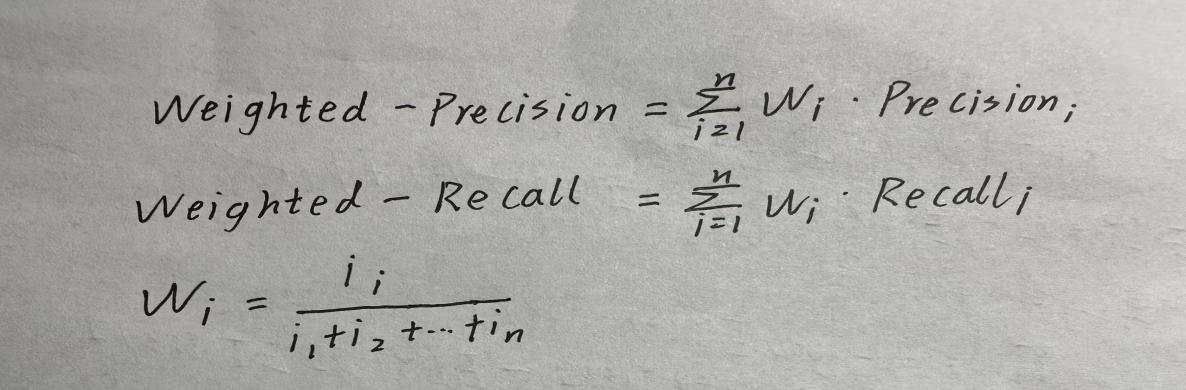 Weighted - Precision = \sum_{i=1}^{n} W_i · Precision_i
Weighted - Recall = \sum_{i=1}^{n} W_i · Recall_i
W_i = \frac{i_i}{i_1 + i_2 + \cdots + i_n}